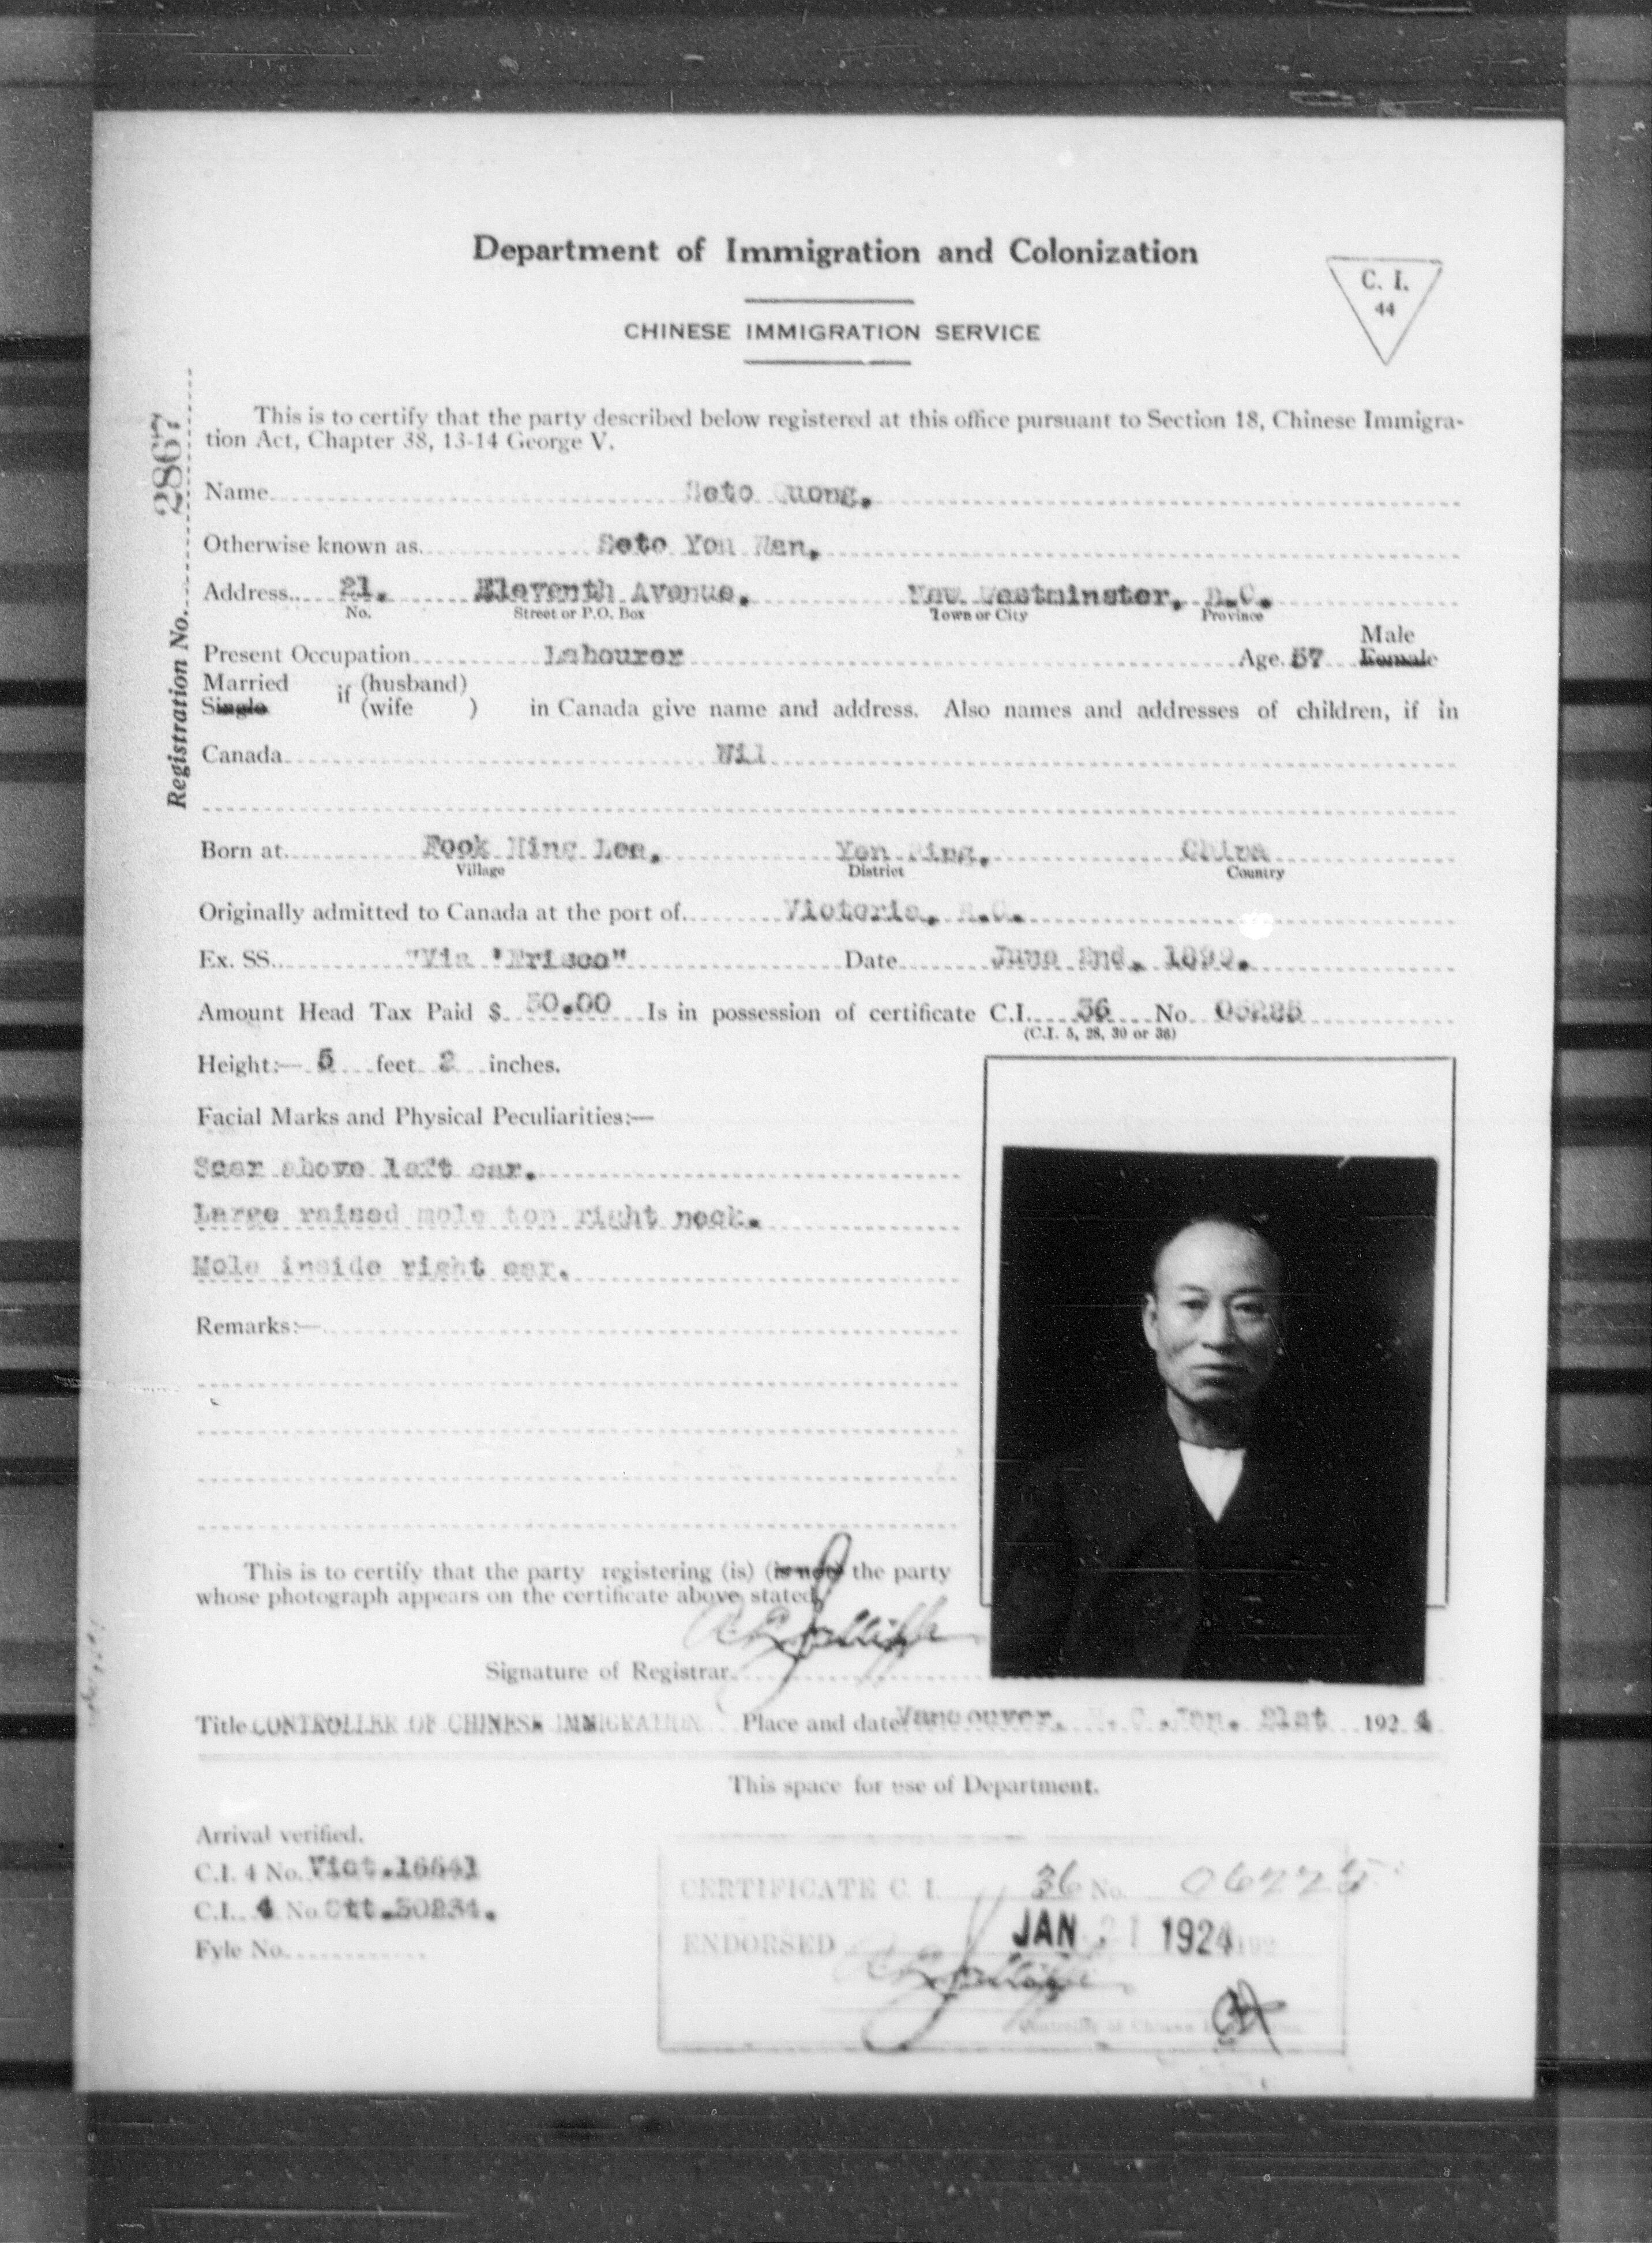 Department of Immigration and Colonization
C. I.
44
CHINESE IMMIGRATION SERVICE
Registration No. 2867
This is to certify that the party described below registered at this office pursuant to Section 18, Chinese Immigra-
tion Act, Chapter 38, 13-14 George V.
Name Seto Quong.
Otherwise known as Seto Yon Wan.
Address 21. Eleventh Avenue. New Westminster, B.C.
No. Street or P.O. Box Town or City Province
Male
Present Occupation Labourer Age 57 Female
Married if (husband)
Single (wife ) in Canada give name and address. Also names and addresses of children, if in
Canada Nil
Born at Fook Hing Lee, Yen Ping, China
Village District Country
Originally admitted to Canada at the port of Victoria, B.C.
Ex. SS. "Via 'Frisco" Date June 2nd. 1899.
Amount Head Tax Paid $ 50.00 Is in possession of certificate C.I. 36 No. 06225
(C.I. 5, 28, 30 or 36)
Height:— 5 feet 2 inches.
Facial Marks and Physical Peculiarities:—
Scar above left ear.
Large raised mole top right neck.
Mole inside right ear.
Remarks:—
This is to certify that the party registering (is) (is not) the party
whose photograph appears on the certificate above stated.
Signature of Registrar
Title CONTROLLER OF CHINESE IMMIGRATION Place and date Vancouver, B.C. Jan. 21st 1924
This space for use of Department.
Arrival verified.
C.I. 4 No. Vict.16641
C.I. 4 No Ott.30234.
Fyle No.
CERTIFICATE C. I. 36 No. 06225
ENDORSED JAN. 21 1924 192
Controller of Chinese Immigration